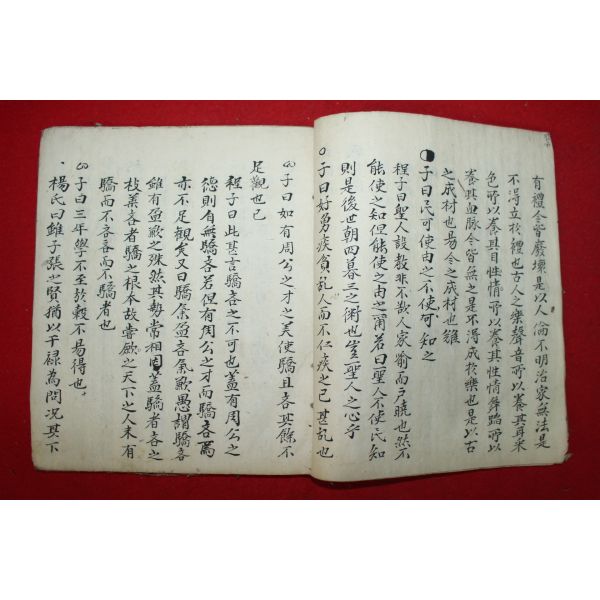 有禮今皆廢壞是以人倫不明治家無法是
不得立於禮也古人之樂聲音所以養其耳采
色所以養其目性情所以養其性情舞蹈所以
養其血脉今皆無之是不得成於樂也是以古
之成材也易今之成材也難
子曰民可使由之不使可知之
程子曰聖人設教非不欲人家喻而户曉也然不
能使之知但能使之由之甭若曰聖人不使民知
則是後世朝四暮三之術也豈聖人之心乎
○子曰好勇疾貧亂人而不仁疾之已甚亂也
子曰如有周公之才之美使驕且吝其餘不
足觀也已
程子曰此甚言驕吝之不可也蓋有周公之
德則自無驕吝若但有周公之才而驕吝焉
亦不足觀矣又曰驕氣盈吝氣歉愚謂驕吝
雖有盈歉之殊然其勢常相因蓋驕者吝之
枝葉吝者驕之根本故嘗驗之天下之人未有
驕而不吝吝而不驕者也
子曰三年學不至於穀不易得也
楊氏曰雖子張之賢猶以干祿為問況其下